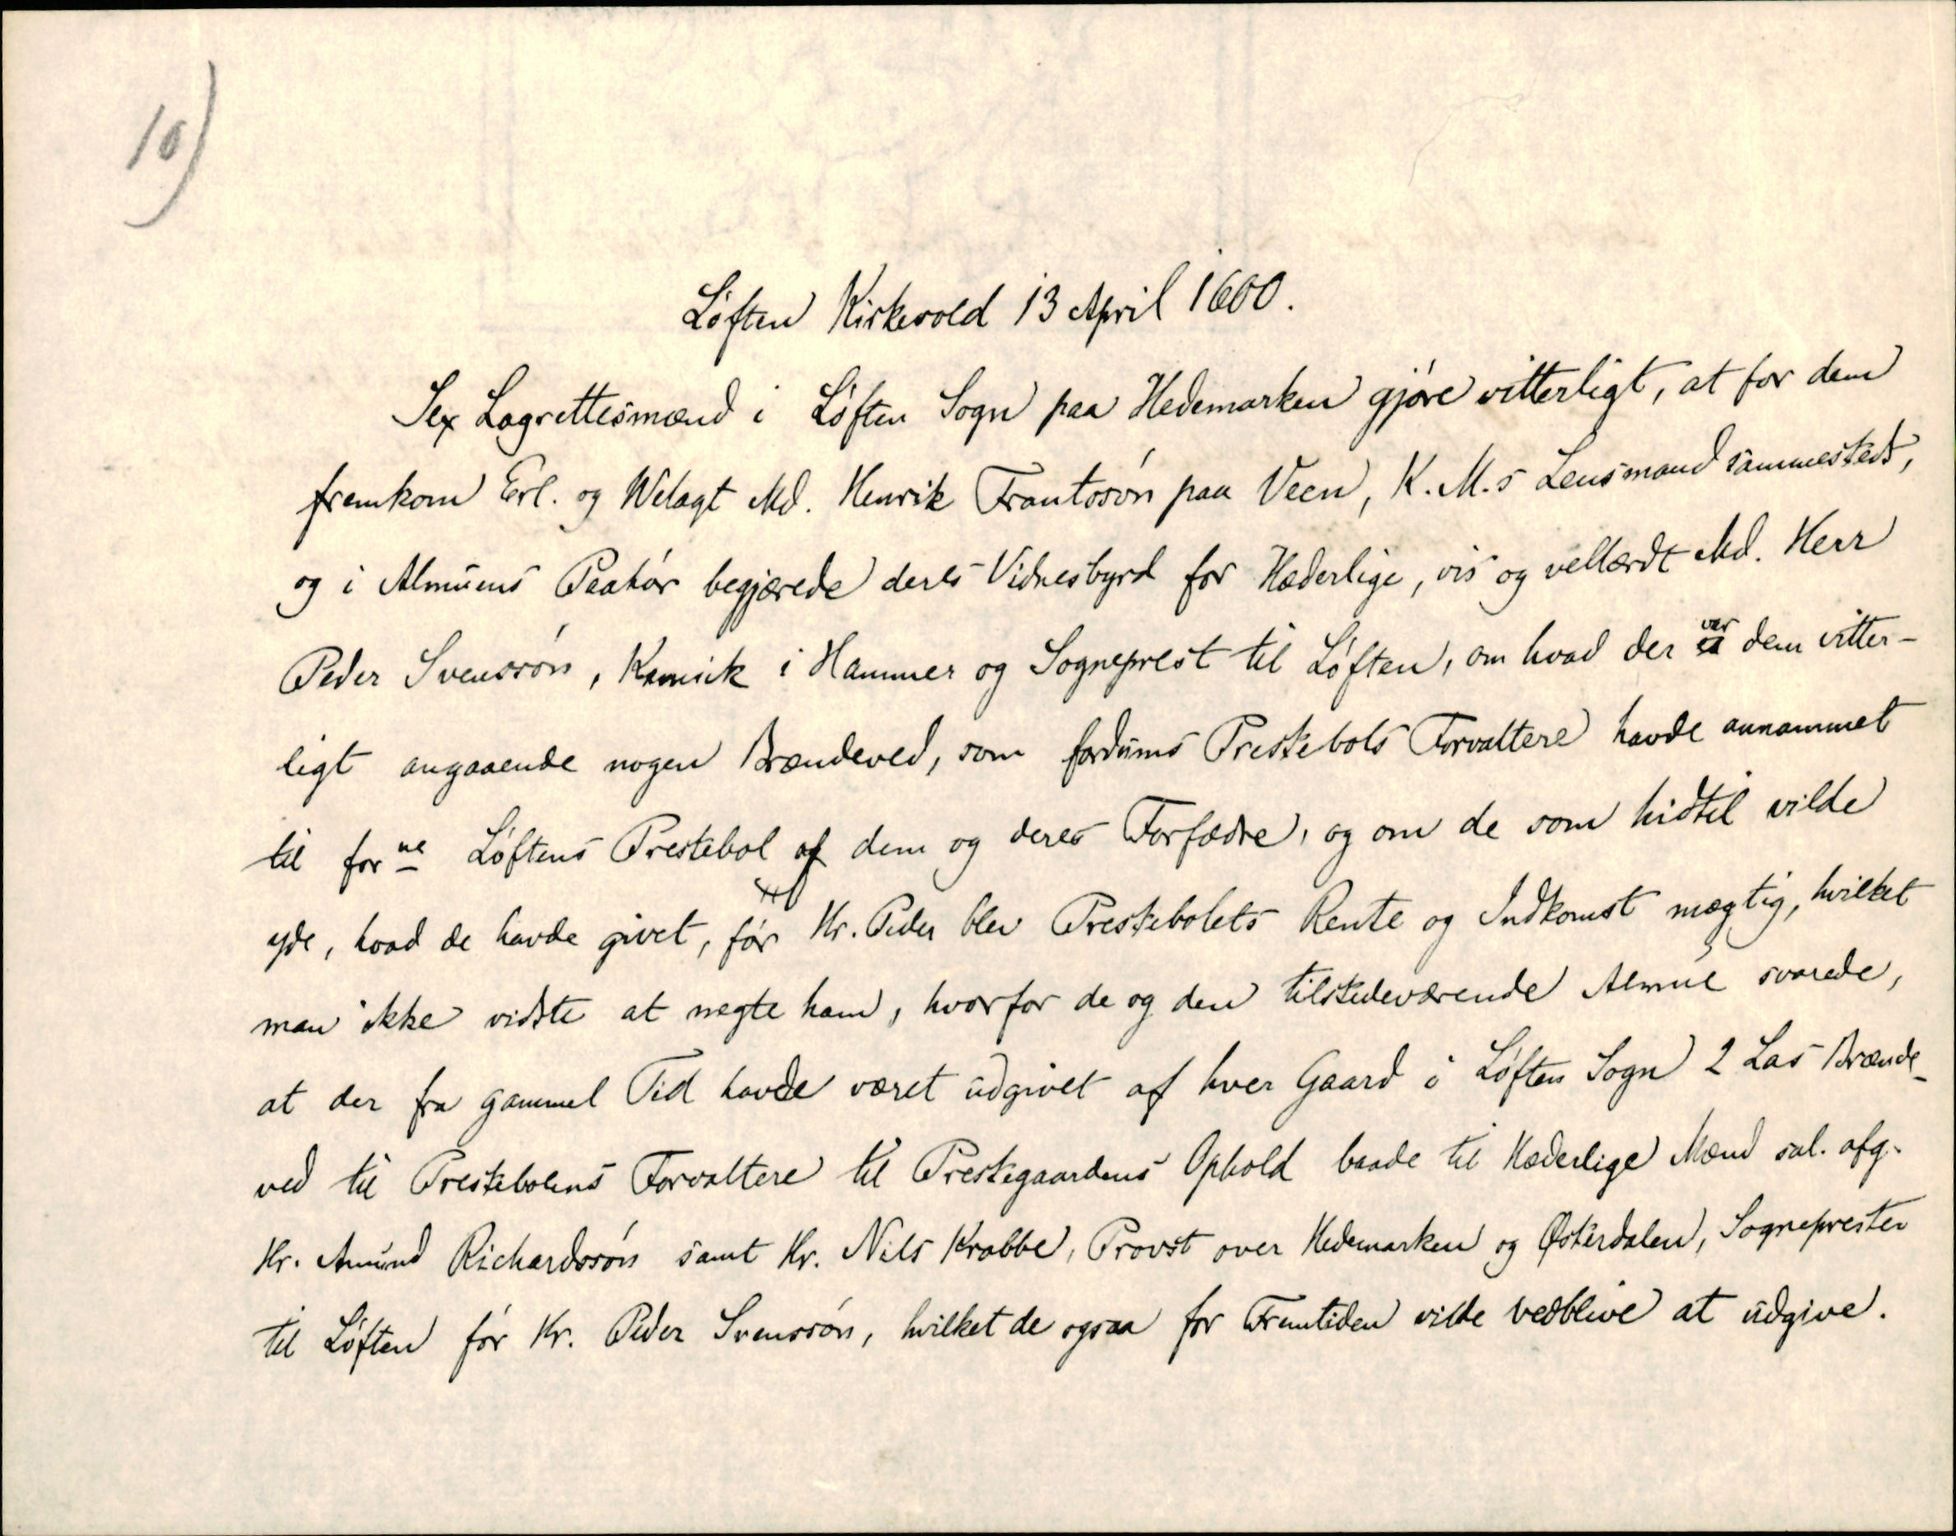 10)
Løften Kirkevold 13 April 1600.
Sex Lagrettesmænd i Løften Sogn paa Hedemarken gjøre vitterligt, at for dem
fremkom Erl. og Welagt Md. Henrik Frantssøn paa Veen, K. M.s Lensmand sammesteds,
og i Almuens Paahør begjærede deres Vidnesbyrd for Hæderlige, vis og vellærdt Md. Herr
Peder Svenssøn, Kannik i Hammer og Sogneprest til Løften, om hvad der var dem vitter-
ligt angaaende nogen Brændeved, som fordums Prestebols Forvaltere havde annammet
til forne Løftens Prestebol af dem og deres Forfædre, og om de som hidtil vilde
yde, hvad de havde givet, før Hr. Peder blev Prestebolets Rente og Indkomst mægtig, hvilket
man ikke vidste at negte ham, hvorfor de og den tilstedeværende Almue svarede,
at der fra gammel Tid havde været udgivet af hver Gaard i Løften Sogn 2 Las Brænde-
ved til Prestebolens Forvaltere til Prestegaardens Ophold baade til Hæderlige Mænd sal. afg.
Hr. Amund Richardssøn samt Hr. Nils Krabbe, Provst over Hedemarken og Østerdalen, Sogneprester
til Løften før Hr. Peder Svenssøn, hvilket de ogsaa for Fremtiden vilde vedblive at udgive.